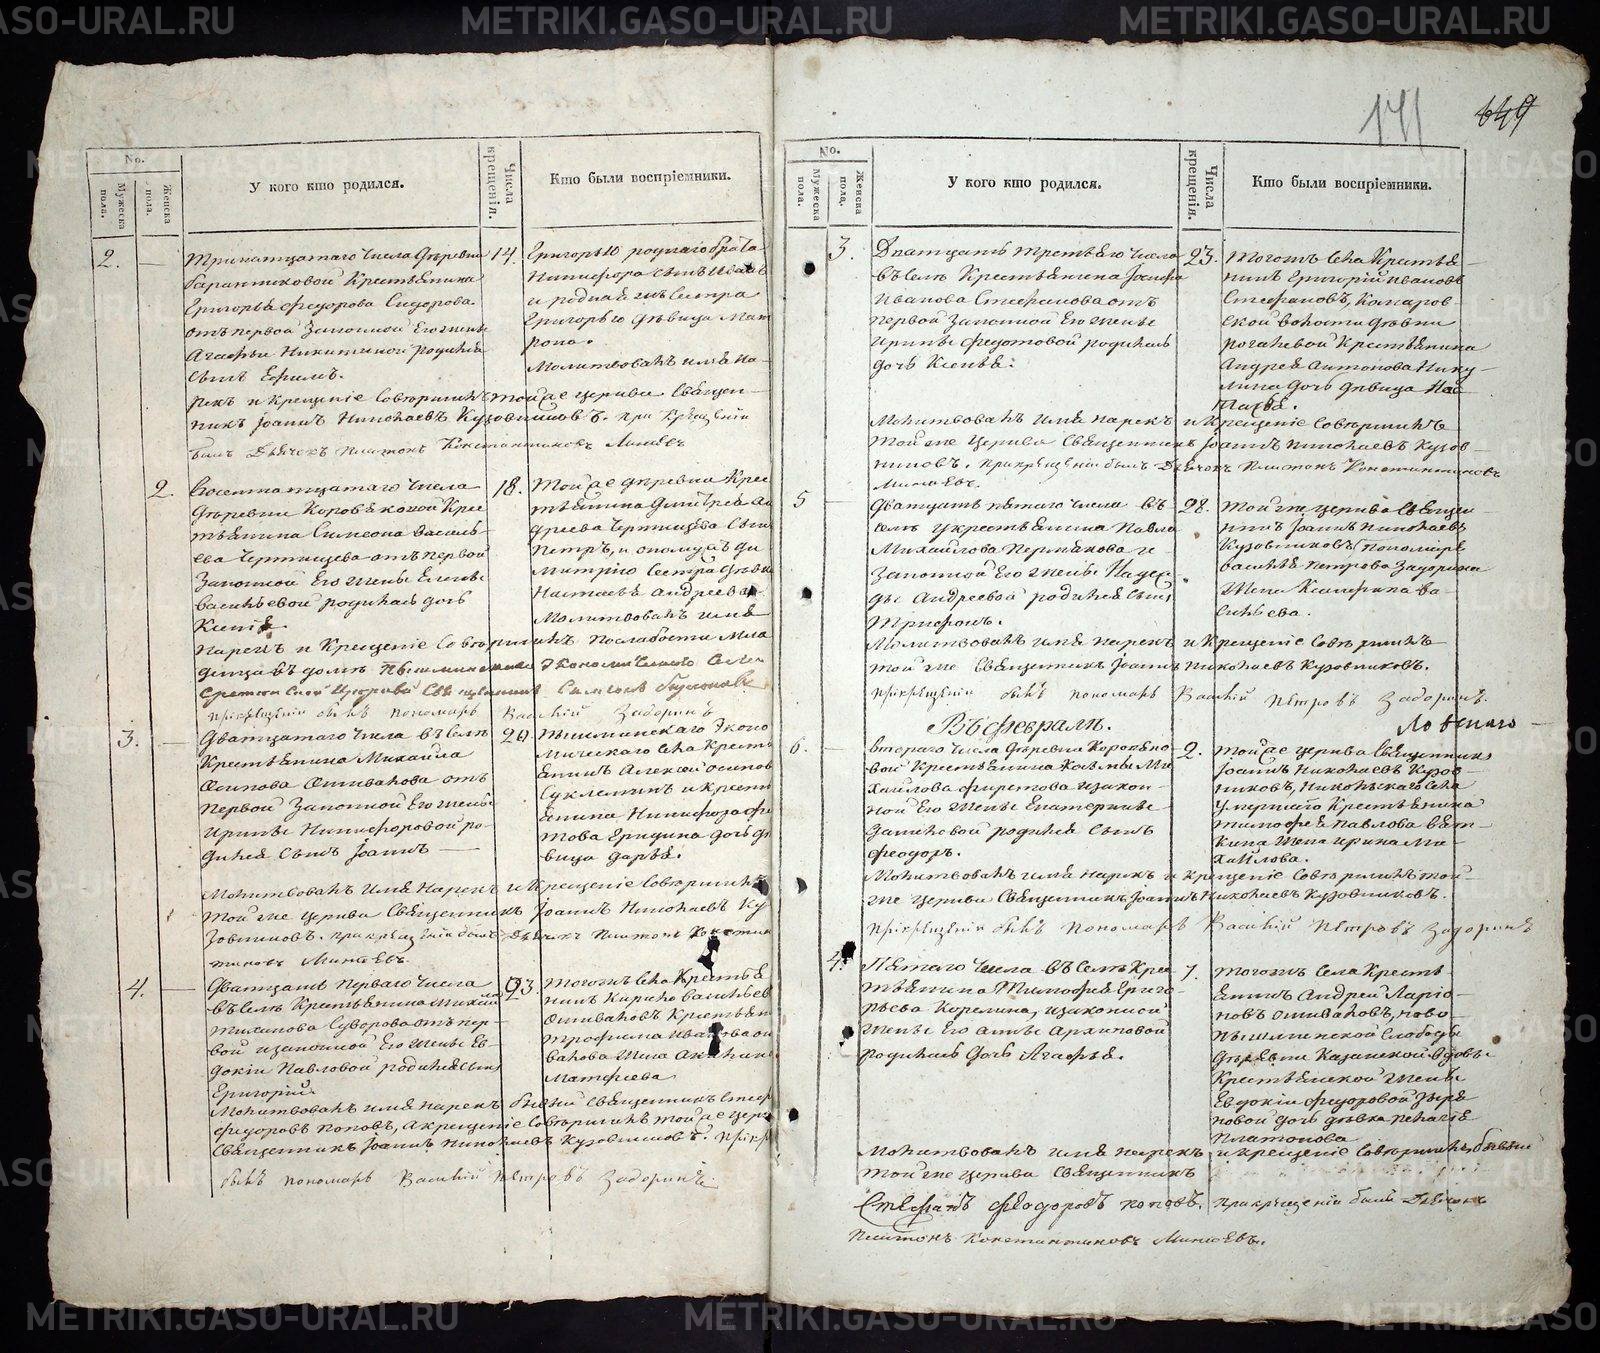 141 649
No.
Мужеска пола.
Женска пола.
У кого кто родился.
Числа крещенія.
Кто были воспріемники.
2. —
Тринатцатаго числа деревни
Крестьянина
Григорья Федорова Сидорова
отъ первой Законной Его жены
Агафьи Никитиной родился
сынъ Ефимъ.
14.
Григорью роднаго брата
Никифора сынъ Иванъ
и родная жъ сестра
Григорью девица Мат
рона.
Молитвовалъ имя на-
рекъ и Крещеніе Совершилъ той же церкви Священ-
никъ Іоаннъ Николаевъ Кузовниковъ. при Крещеніи
былъ Дьячокъ Платонъ Константиновъ Минѣевъ
2.
Восемнатцатаго числа
деревни Коровяковой Крес
тьянина Симеона Василь-
ева Чертищева отъ первой
Законной Его жены Елены
Васильевой родилась дочь
Ксенія
18.
Той же деревни Крес
тьянина Дмитрея Ан
дреева Чертищева сынъ
Петръ, и оному жъ Ди
митрію сестра девка
Настасья Андреева
Молитвовалъ имя
нарекъ и Крещеніе Совершилъ по слабости мла
денца въ доме Пышминского Экономическаго Села
Сретенской Церкви Священникъ Симеонъ
при крещеніи былъ пономарь Василій Задоринъ
3. —
Дватцатаго числа въ селе
Крестьянина Михаила
Осипова Оливанова отъ
первой Законной Его жены
Ирины Никифоровой ро-
дился сынъ Іоаннъ —
20.
Пышминскаго Эконо
мическаго села Кресть
янинъ Алексей Осипов
Суклеминъ и Кресть
янина Никифора Фе
това Еришна дочь де
вица Дарья.
Молитвовалъ имя нарекъ и Крещеніе Совершилъ
той же церкви Священникъ Іоаннъ Николаевъ Ку
зовниковъ. при крещеніи былъ Дьячокъ Платонъ Констан
тиновъ Минѣевъ.
4. —
Дватцать перваго числа
въ селе Крестьянина Михаил
Тиханова Суворова отъ пер-
вой и законной Его жены Ев-
докіи Павловой родился сынъ
Григорій.
23.
Тогожъ села Крестья
нинъ Кирило Васильев
Оливановъ Крестьян
Трофима Иванова Ол
ванова жена Акилина
Матфеева
Молитвовалъ имя нарекъ бывый Священникъ Стеф
Федоровъ Поповъ, а крещеніе Совершилъ той же цер
Священникъ Іоаннъ Николаевъ Кузовниковъ. при кр
былъ пономарь Василій Петровъ Задоринъ.
No.
Мужеска пола.
Женска пола.
У кого кто родился.
Числа крещенія.
Кто были воспріемники.
3.
Дватцать третьяго числа
въ селе Крестьянина Іосифа
Иванова Стефанова отъ
первой Законной Его жены
Ирины Федотовой родилась
дочь Ксенья.
23.
Тогожъ села Крестья-
нинъ Григорій Ивановъ
Стефановъ, Комаров-
ской волости девни
Рогалевой Крестьянина
Андрея Антонова Нику-
лина дочь девица Нас
тасья.
Молитвовалъ имя нарекъ и Крещеніе Совершилъ
той же церкви Священникъ Іоаннъ Николаевъ Кузов-
никовъ. при крещеніи былъ Дьячокъ Платонъ Константиновъ
Минѣевъ.
5 —
Дватцать пятаго числа въ
селе у крестьянина Павла
Михайлова Пермякова и
законной Его жены Надеж-
ды Андреевой родился сынъ
Трифонъ.
28.
Той же церкви Священ-
никъ Іоаннъ Николаевъ
Кузовниковъ, пономаря
Василья Петрова Задорина
жена Ва-
сильева.
Молитвовалъ имя нарекъ и Крещеніе Совершилъ
той же Священникъ Іоаннъ Николаевъ Кузовниковъ.
при крещеніи былъ пономарь Василій Петровъ Задоринъ.
Въ Февралѣ.
6. —
Втораго числа деревни Коровяко-
вой Крестьянина Козмы Ми
хайлова Фирстова и закон-
ной Его жены Екатерины
Даниловой родился сынъ
Феодоръ.
2.
Той же церкви Священникъ
Іоаннъ Николаевъ Кузов-
никовъ, Никольскаго села
умершаго Крестьянина
Тимофея Павлова Вят-
кина жена Ирина Ми-
хайлова.
Молитвовалъ имя нарекъ и крещеніе Совершилъ той
же церкви Священникъ Іоаннъ Николаевъ Кузовниковъ.
при крещеніи былъ пономарь Василій Петровъ Задоринъ
4.
Пятаго числа въ селе Крес
тьянина Тимофея Григо-
рьева Корелина, и законной
жены Его Анны Архиповой
родилась дочь Агафья.
7.
Тогожъ села Кресть-
янинъ Андрей Ларіо-
новъ Оливановъ, Ново-
пышминской слободы
деревни Казанской вдовы
Крестьянской жены
Евдокіи Федоровой Зыря
новой дочь девка Пелагія
Платонова
Молитвовалъ имя нарекъ и крещеніе Совершилъ бывый
той же церкви Священникъ
Стефанъ Феодоровъ Поповъ. при крещеніи былъ Дьячокъ
Платонъ Константиновъ Минѣевъ.
METRIKI.GASO-URAL.RU